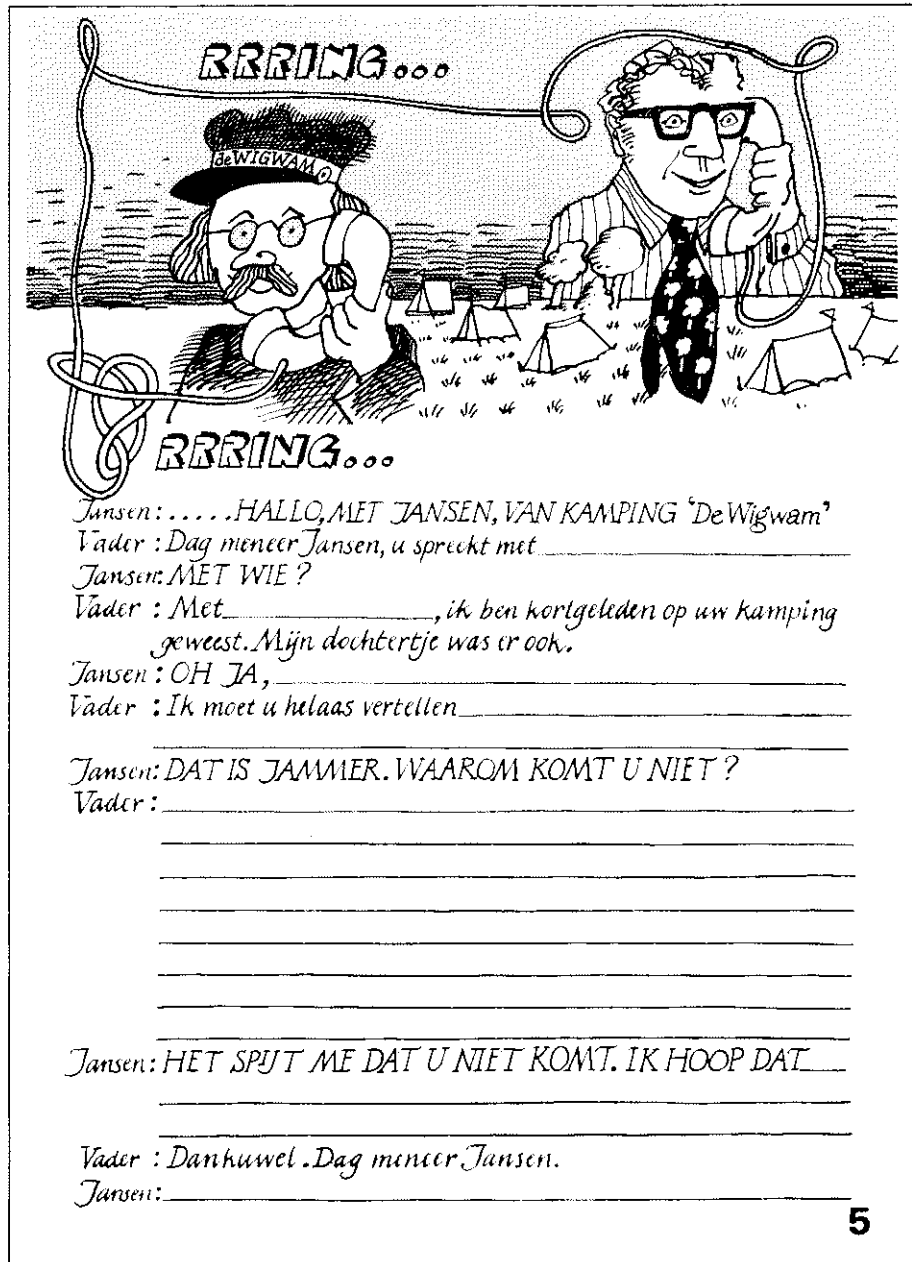 RRRING...
deWIGWAM
RRRING...
Jansen: .....HALLO, MET JANSEN, VAN KAMPING 'De Wigwam'
Vader : Dag meneer Jansen, u spreekt met
Jansen: MET WIE?
Vader : Met , ik ben kortgeleden op uw kamping
geweest. Mijn dochtertje was er ook.
Jansen: OH JA,
Vader : Ik moet u helaas vertellen
Jansen: DAT IS JAMMER. WAAROM KOMT U NIET?
Vader :
Jansen: HET SPIJT ME DAT U NIET KOMT. IK HOOP DAT
Vader : Dankuwel. Dag meneer Jansen.
Jansen:
5